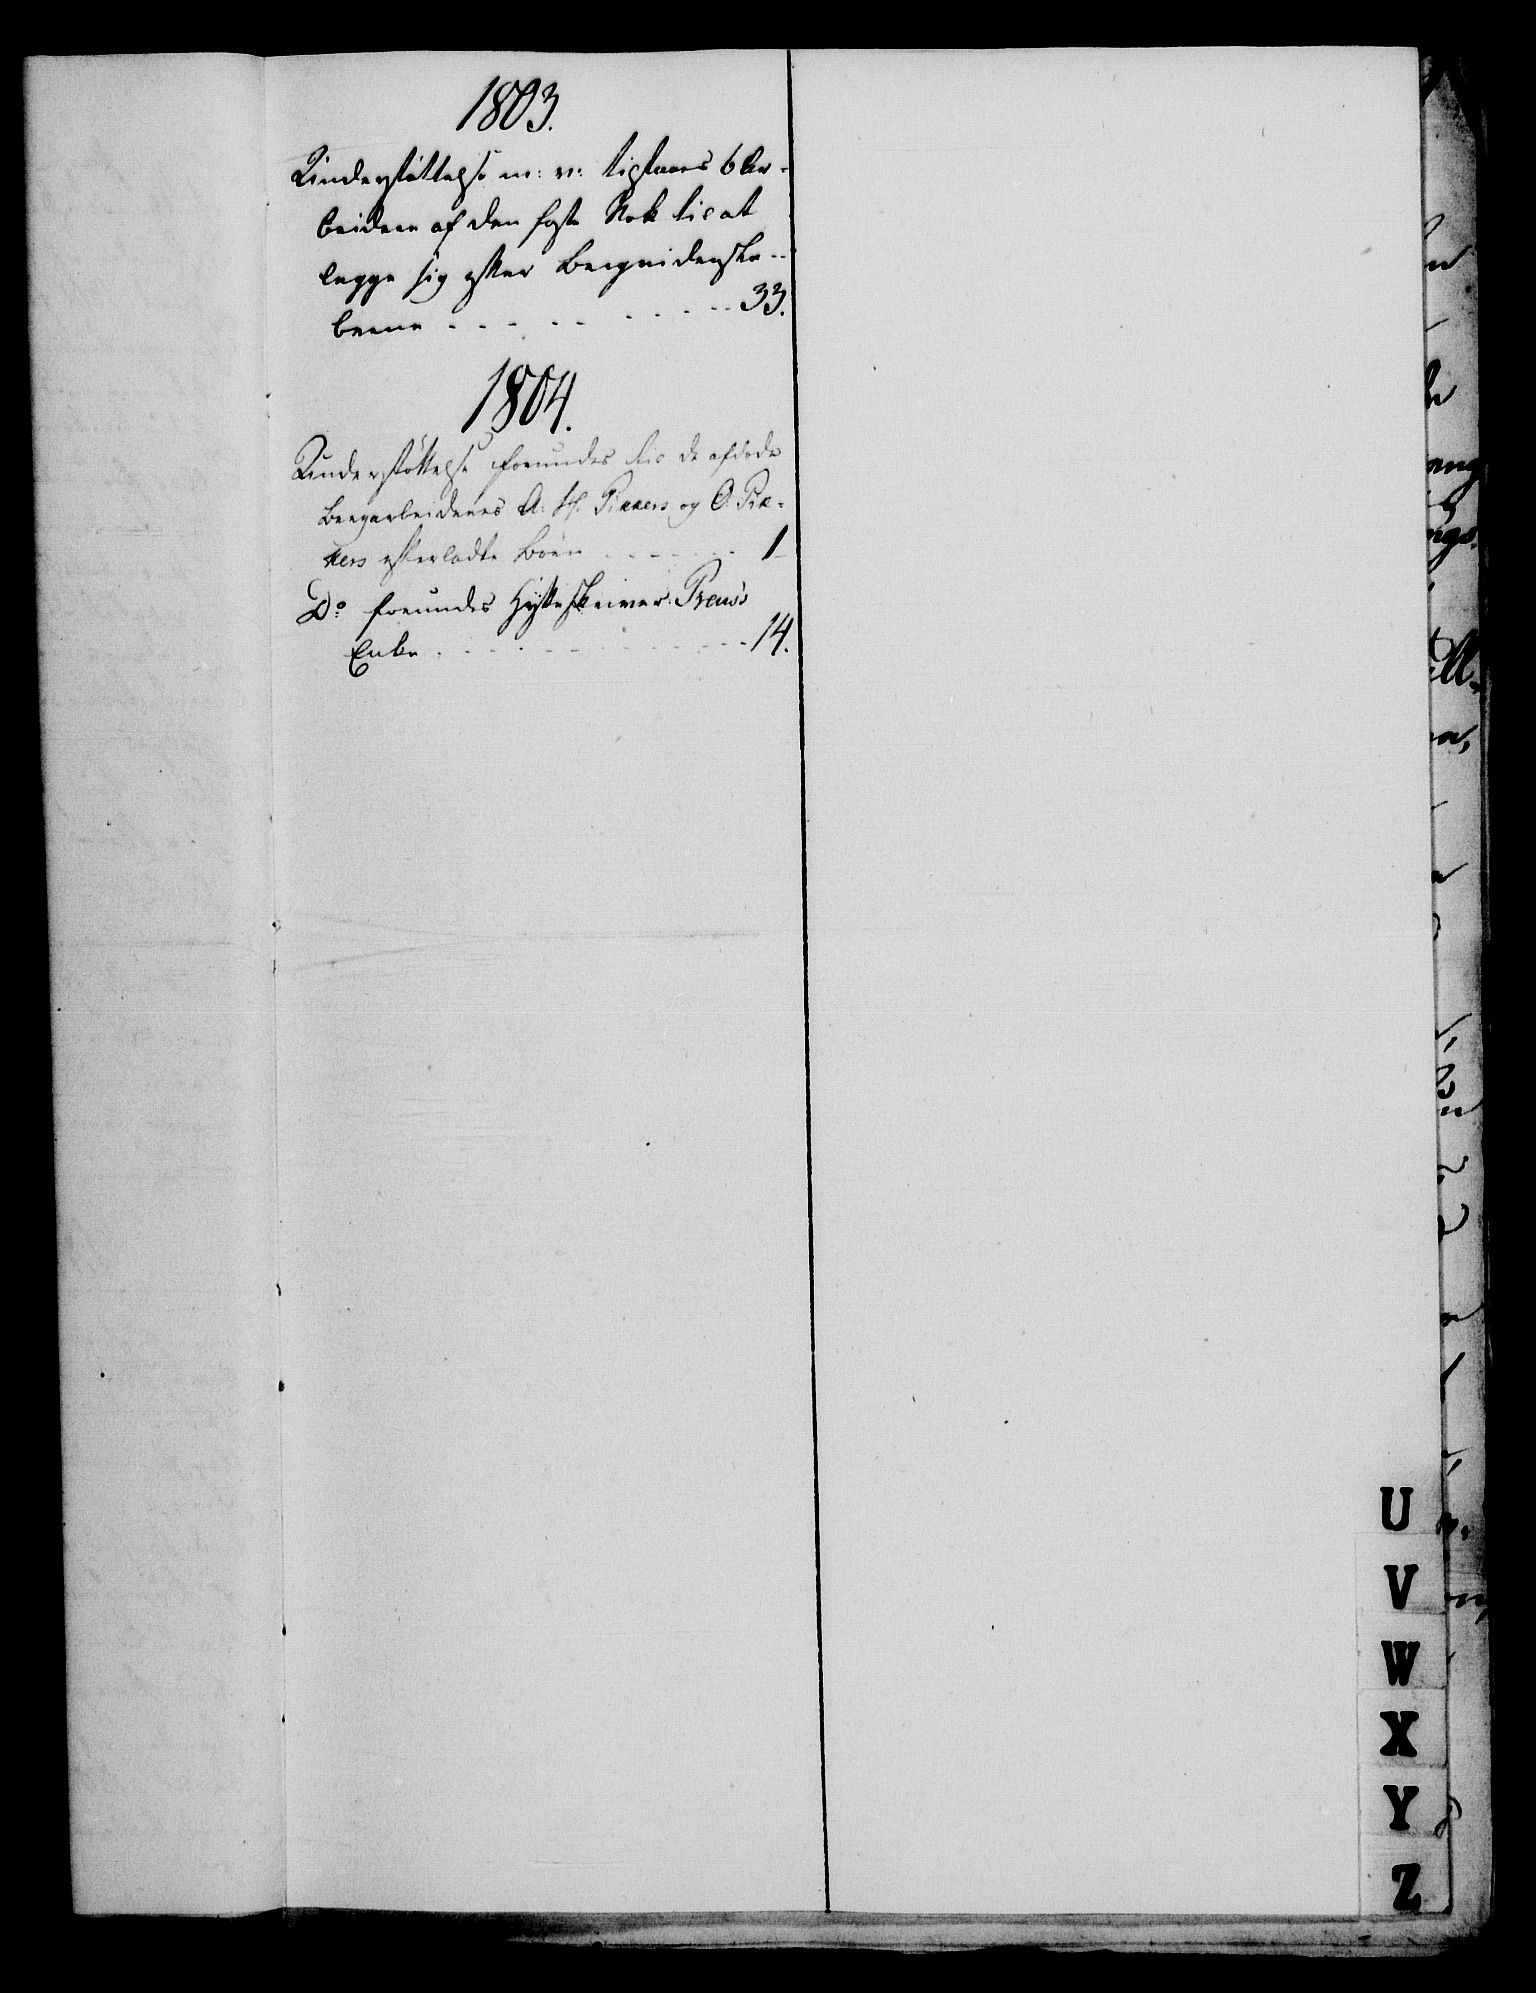 1803.
Understøttelse m: v: tilstaaes 6 Ar-
beidere af den faste Stok til at
legge sig efter Bergvidenska-
berne - - - - - - - - 33.
1804.
Understøttelse forundes til de afdøde
Bergarbeideres A. H. Pikkers og O. Pik-
kers efterladte Börn - - - - - - 1
Do forundes Hytteskriver Preus's
Enke - - - - - - - - - - 14.
U
V
W
X
Y
Z